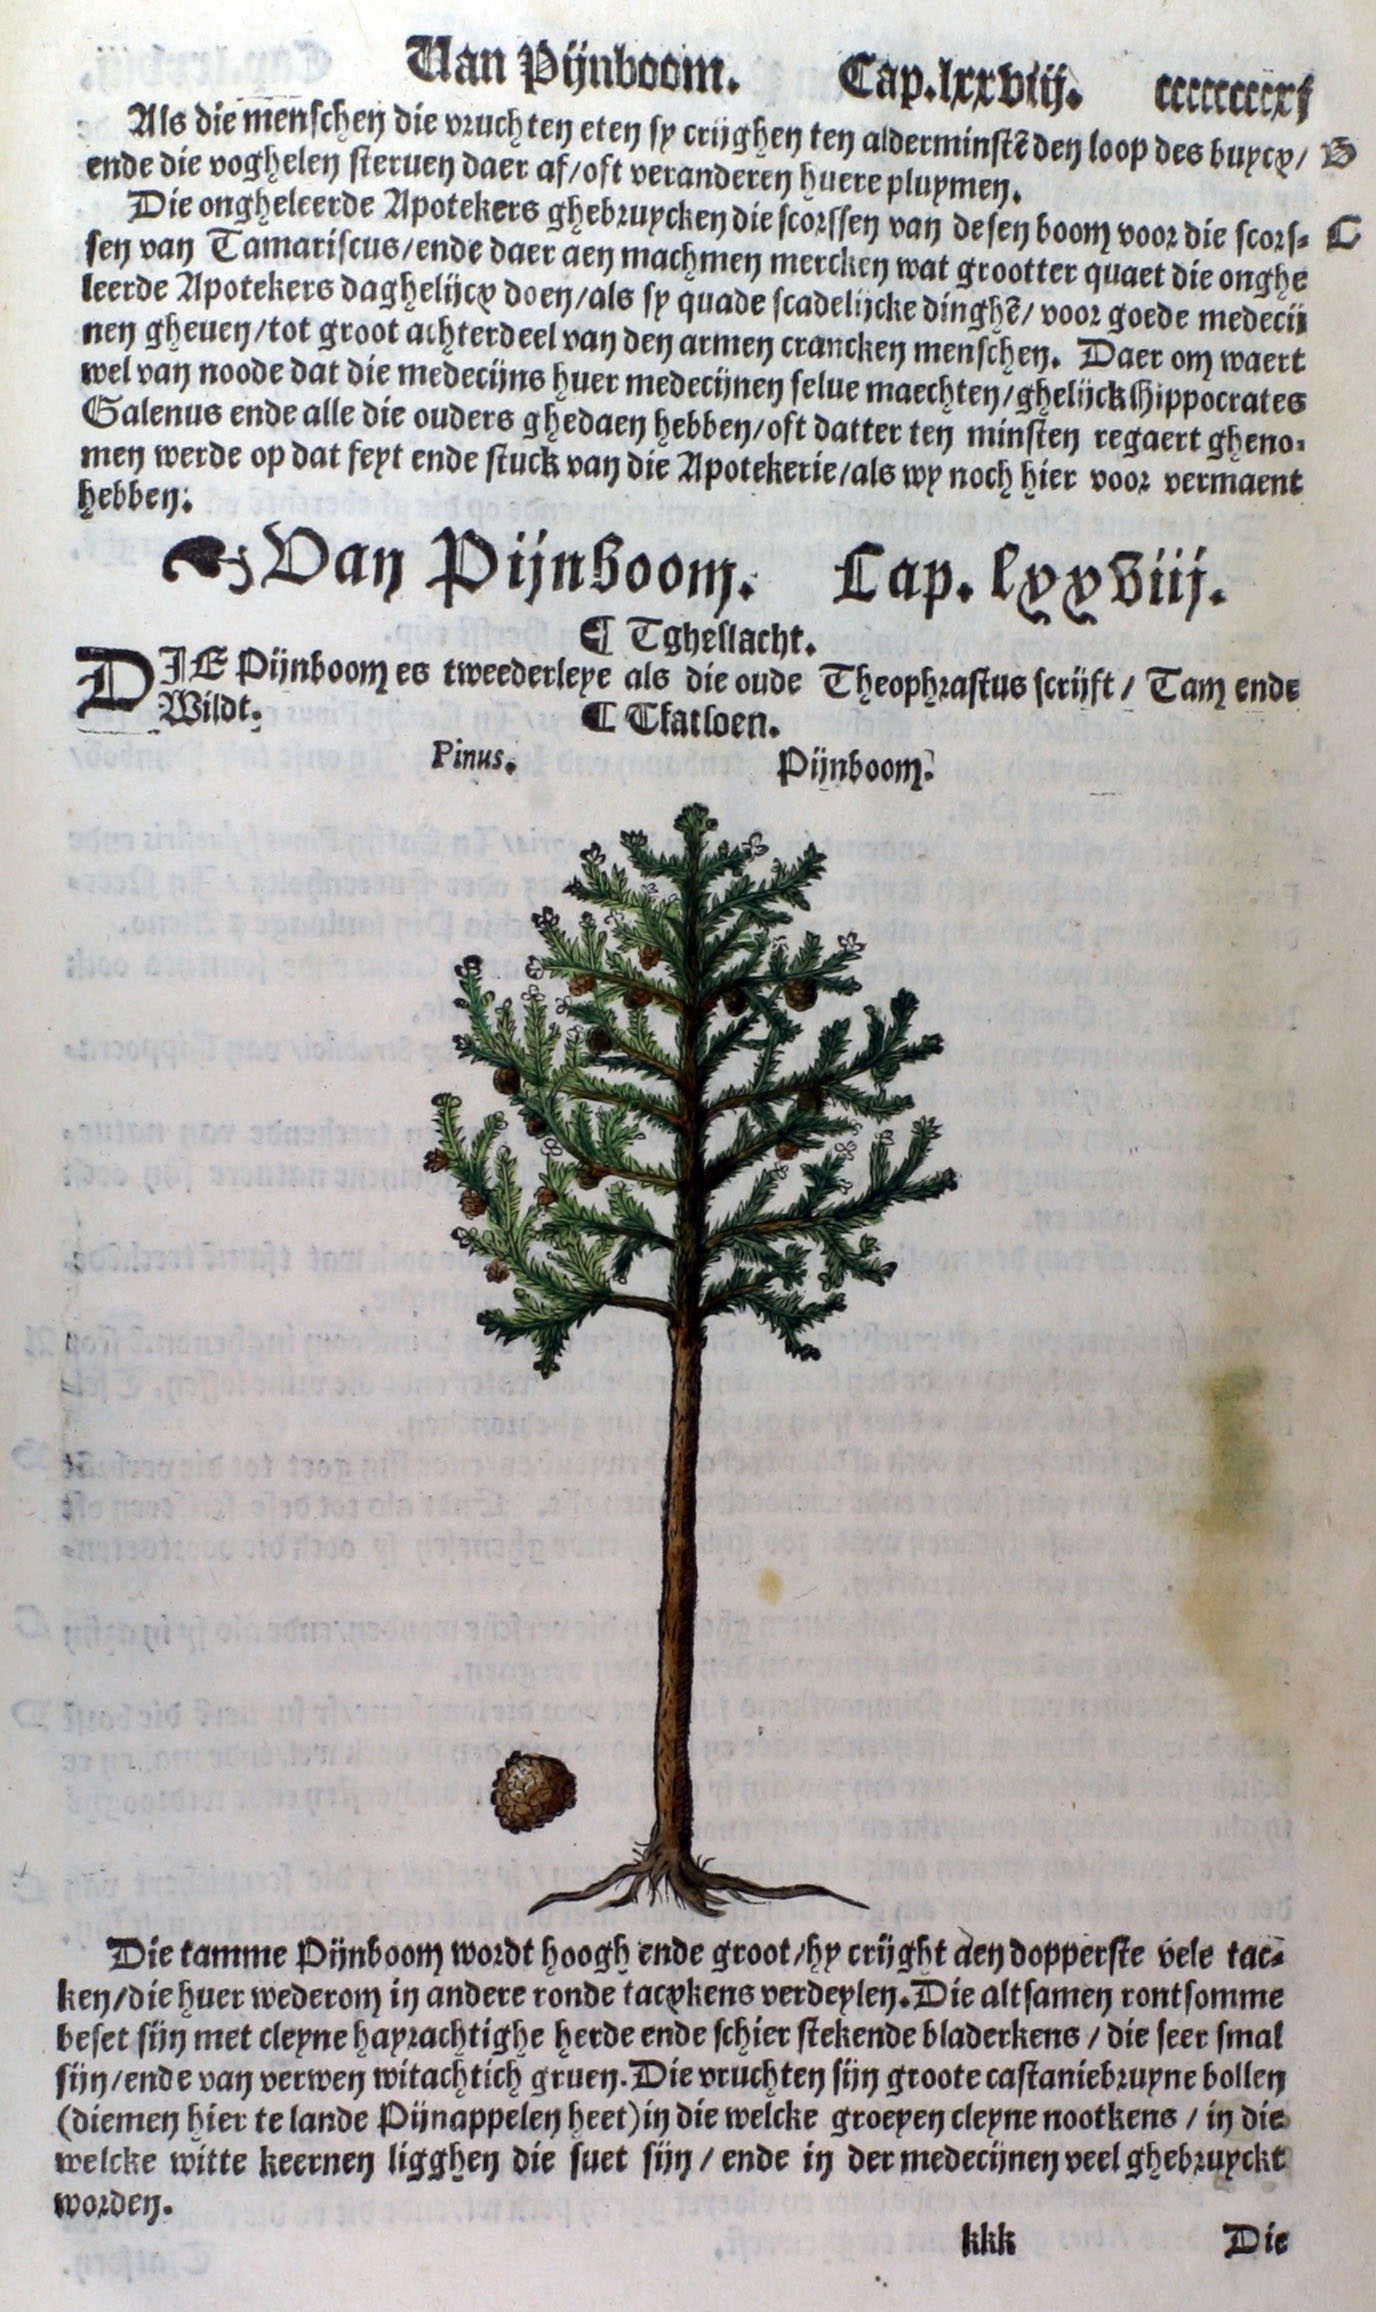 Van Pijnboom. Cap. lxxviij. ccccccccxj
Als die menschen die vruchten eten sy crijghen ten alderminstē den loop des buycx/ B
ende die voghelen steruen daer af/oft veranderen huere pluymen.
Die ongheleerde Apotekers ghebruycken die scorssen van desen boom voor die scors- C
sen van Tamariscus/ende daer aen machmen mercken wat grootter quaet die onghe
leerde Apotekers daghelijcx doen/als sy quade scadelijcke dinghē/ voor goede medecij
nen gheuen/tot groot achterdeel van den armen crancken menschen. Daer om waert
wel van noode dat die medecijns huer medecijnen selue maechten/ghelijck Hippocrates
Galenus ende alle die ouders ghedaen hebben/oft datter ten minsten regaert gheno-
men werde op dat feyt ende stuck van die Apotekerie/als wy noch hier voor vermaent
hebben.
Van Pijnboom. Cap. lxxviij.
¶ Tgheslacht.
DIE Pijnboom es tweederleye als die oude Theophrastus scrijft/ Tam ende
Wildt.
¶ Tfatsoen.
Pinus. Pijnboom.
Die tamme Pijnboom wordt hoogh ende groot/hy crijght aen dopperste vele tac-
ken/die huer wederom in andere ronde tacxkens verdeylen. Die altsamen rontsomme
beset sijn met cleyne hayrachtighe herde ende schier stekende bladerkens/ die seer smal
sijn/ende van verwen witachtich gruen. Die vruchten sijn groote castaniebruyne bollen
(diemen hier te lande Pijnappelen heet) in die welcke groeyen cleyne nootkens/ in die
welcke witte keernen ligghen die suet sijn/ ende in der medecijnen veel ghebruyckt
worden.
kkk Die